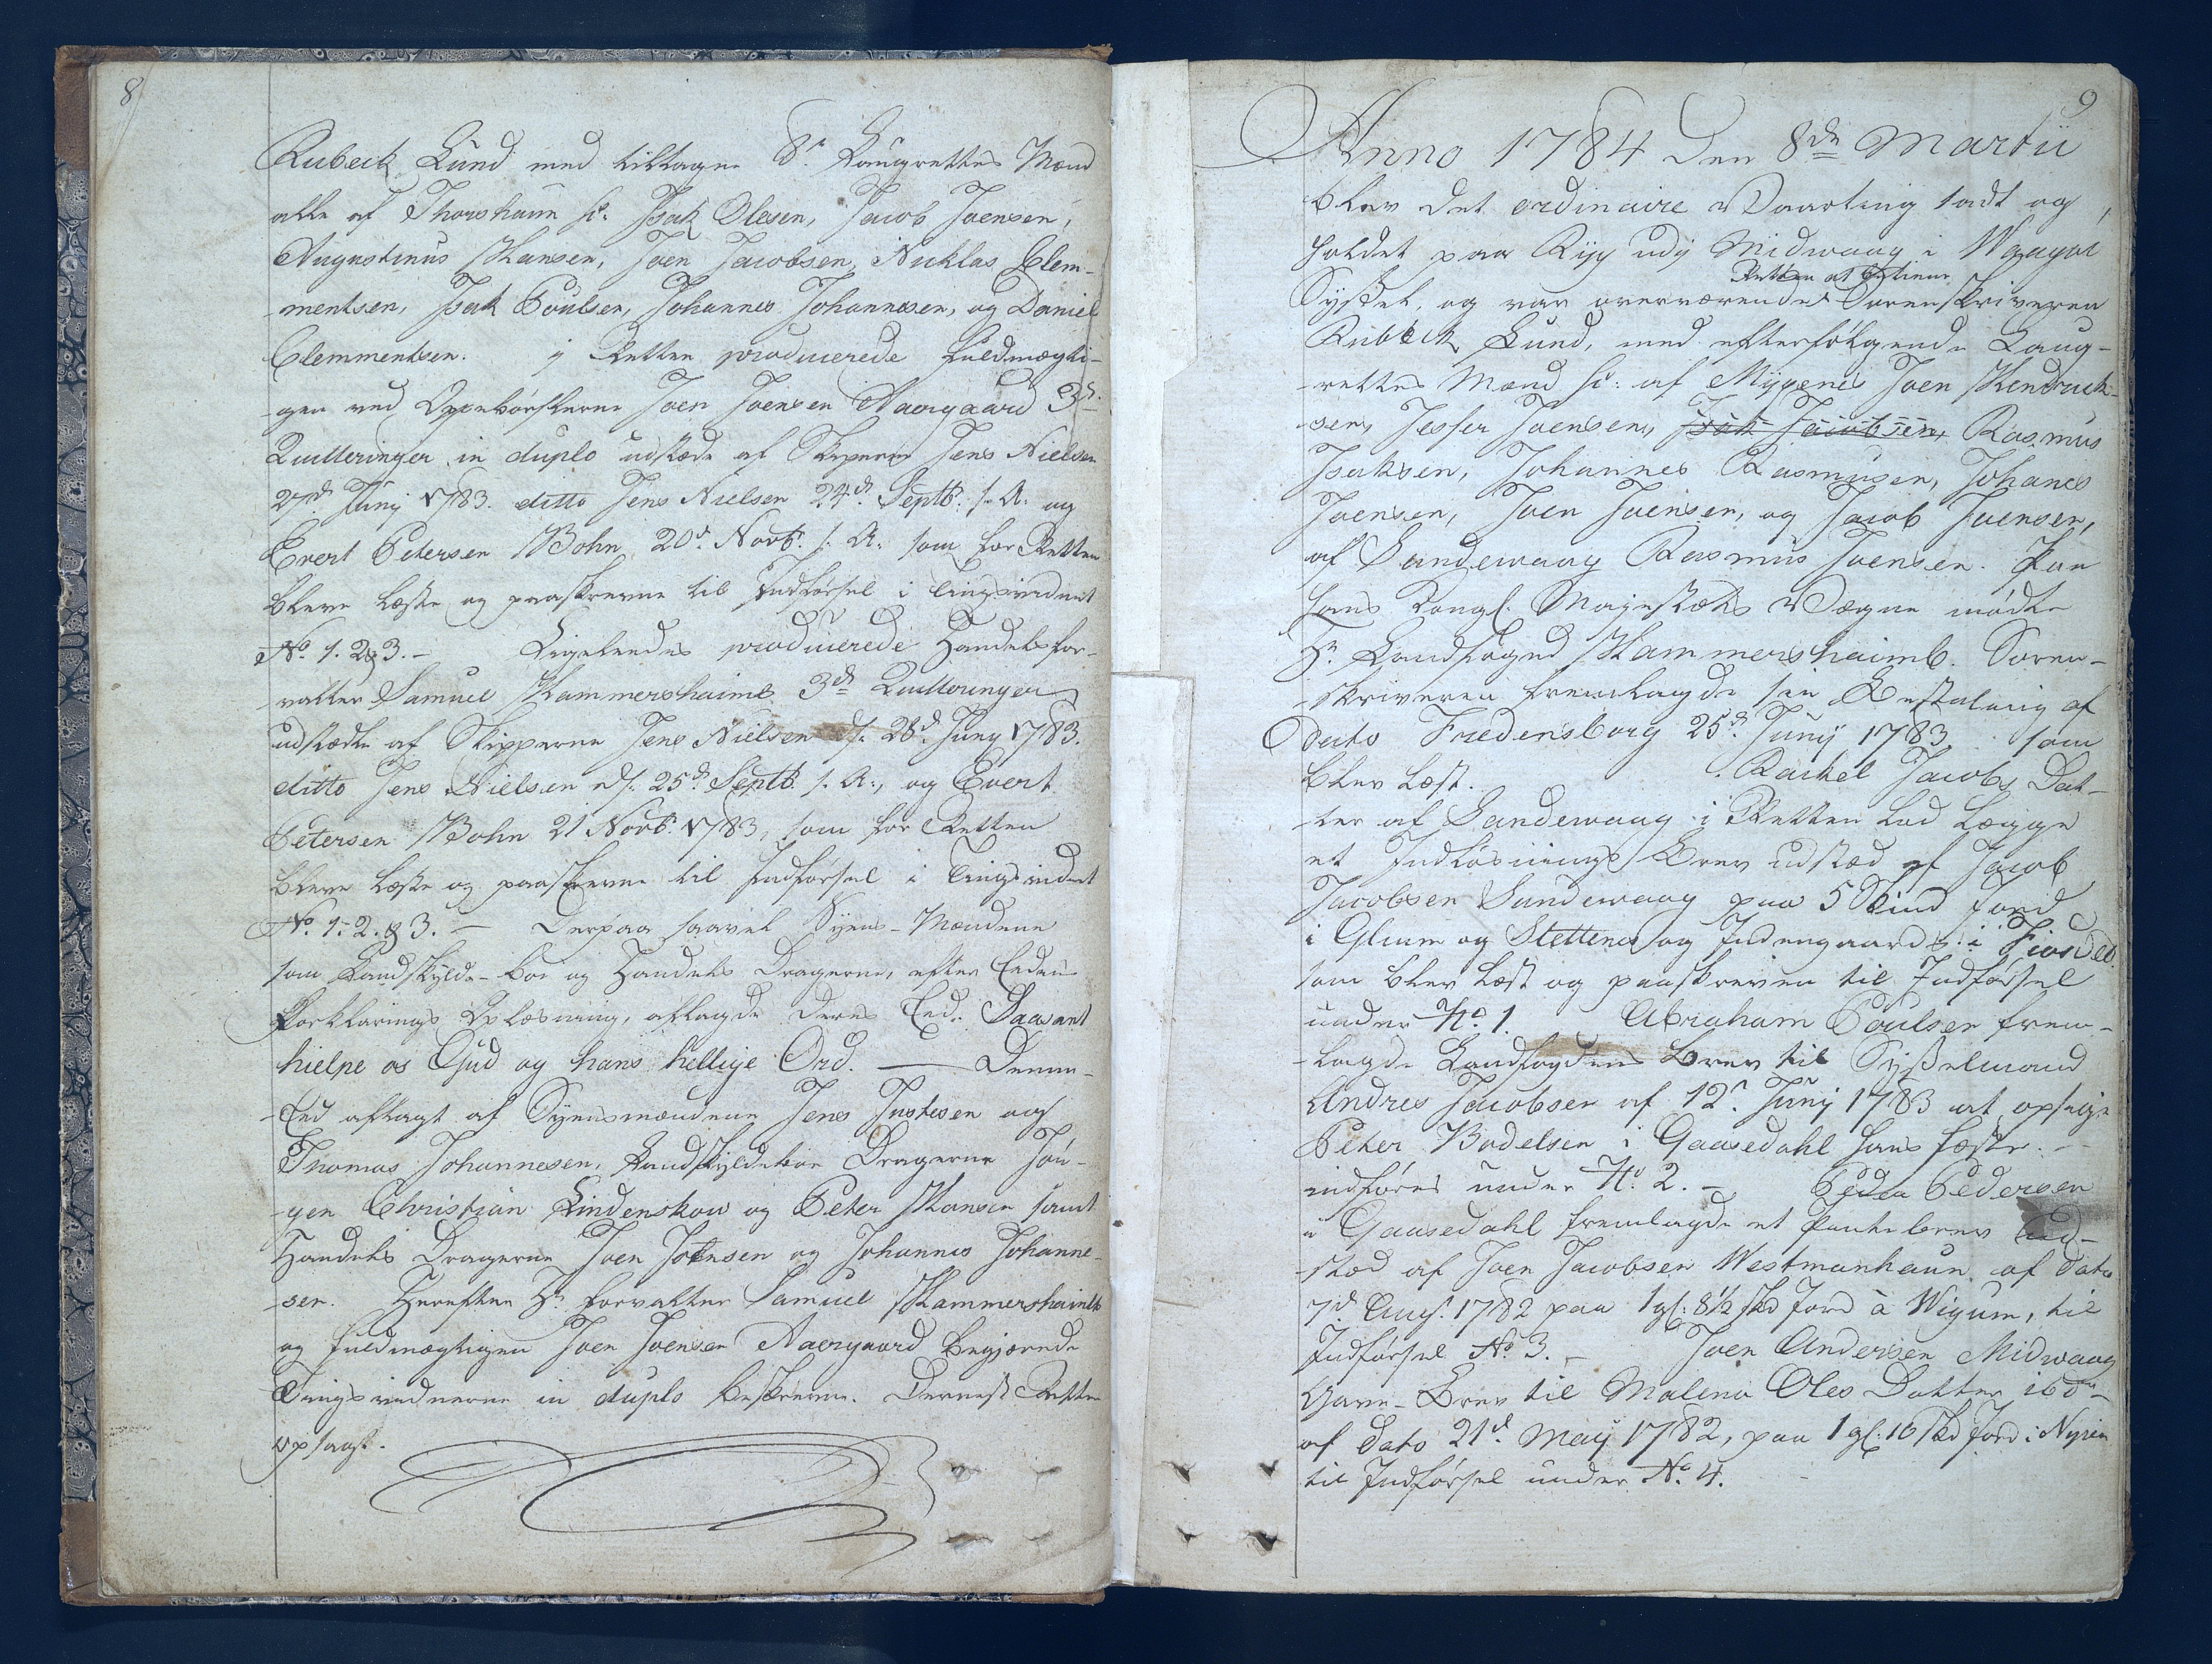 8
Rubeck Lund med tiltagne 8te Laugrettes Mænd
alle af Thorshaun sc: Isak Olesen, Jacob Joensen,
Augustinus Hansen, Joen Jacobsen, Nicklas Clem-
mentsen, Isak Poulsen, Johannes Johannesen, og Daniel
Clemmentsen. i Retten producerede fuldmægti-
gen ved Oppebørslerne Joen Joensen Aaergaard 3de
Quitteringer in duplo udstæde af Skipperne Jens Nielsen
27de Junij 1783. ditto Jens Nielsen 24de Septb: s. A: og
Evert Petersen Bohn 20de Novb: s. A: som for Retten
bleve læste og paaskrevne til Indførsel i tingsvidnet
No. 1. 2 & 3. – Ligeledes producerede Handelsfor-
valter Samuel Hammershaimb 3de Quitteringer
udstædte af Skipperne Jens Nielsen d: 28de Junij 1783.
ditto Jens Nielsen d: 25de Septb: s. A:, og Evert
Petersen Bohn 21 Novb: 1783, som for Retten
bleve læste og paaskrevne til Indførsel i Tingsvidnet
No. 1. 2. & 3. – Derpaa saavel Syens-Mændene
som Landskylds-boe og Handels Dragerne, efter Eedens
Forklarings Oplæsning, aflagde deres Eed: Saasant
hielpe os Gud og hans hellige Ord. — Denne
Eed aflagt af Syensmændene Jens Justesen og
Thomas Johannesen, Landskyldeboe Dragerne Jør-
gen Christian Lindenskow og Peter Hansen samt
Handels Dragerne Joen Joensen og Johannes Johanne-
sen. Herefter Hr. forvalter Samuel Hammershaimb
og fuldmægtigen Joen Joensen Aaergaard begjærede
Tingsvidnerne in duplo beskrevne. Dernest Retten
ophævet.
9
Anno 1784 den 8de Martii
blev det ordinaire Vaarting sadt og
holdet paa Ryg udi Midwaag i Waagøe
Retten at betiene
Syssel, og var overværende Sorenskriveren
Rubeck Lund, med efterfølgende Laug-
rettes Mænd sc: af Myggenes Joen Hendrich-
sen, Jesper Joensen, Isak Jacobsen, Rasmus
Isaksen, Johannes Rasmusen, Johanes
Joensen, Joen Joensen, og Jacob Joensen,
af Sandewaag Rasmus Joensen. Paa
Hans Kongl. Majestæts Vegne mødte
Hr. Landfoged Hammershaimb. Soren-
skriveren fremlagde sin Bestalning af
Dato Fredensborg 25de Junij 1783 som
blev læst. Rachel Jacobs Dat-
ter af Sandewaag i Retten lod lægge
et Indløsnings Brev udstæd af Jacob
Jacobsen Sandewaag paa 5 Skind Jord
i Glium og Stettena og Indengaards i Fiordal
som blev læst og paaskreven til Indførsel
under No. 1. Abraham Poulsen frem-
lagde Landfogdens brev til Sysselmand
Andres Jacobsen af 12te Junij 1783 at opsige
Peter Bodelsen i Gaasedahl hans fæste. –
indføres under No. 2. – Peder Pedersen
i Gaasedahl fremlagde et Pantebrev ud-
stæd af Joen Jacobsen Westmanhaun af Dato
7de Aug: 1782 paa 1 gl: 8 1/2 skd Jord à Wigum, til
Indførsel No. 3. – Joen Andersen Midwaag
Gave-Brev til Malena Oles Datter ibdm
af Dato 21de Maij 1782, paa 1 gl: 16 skd Jord i
til Indførsel under No. 4.